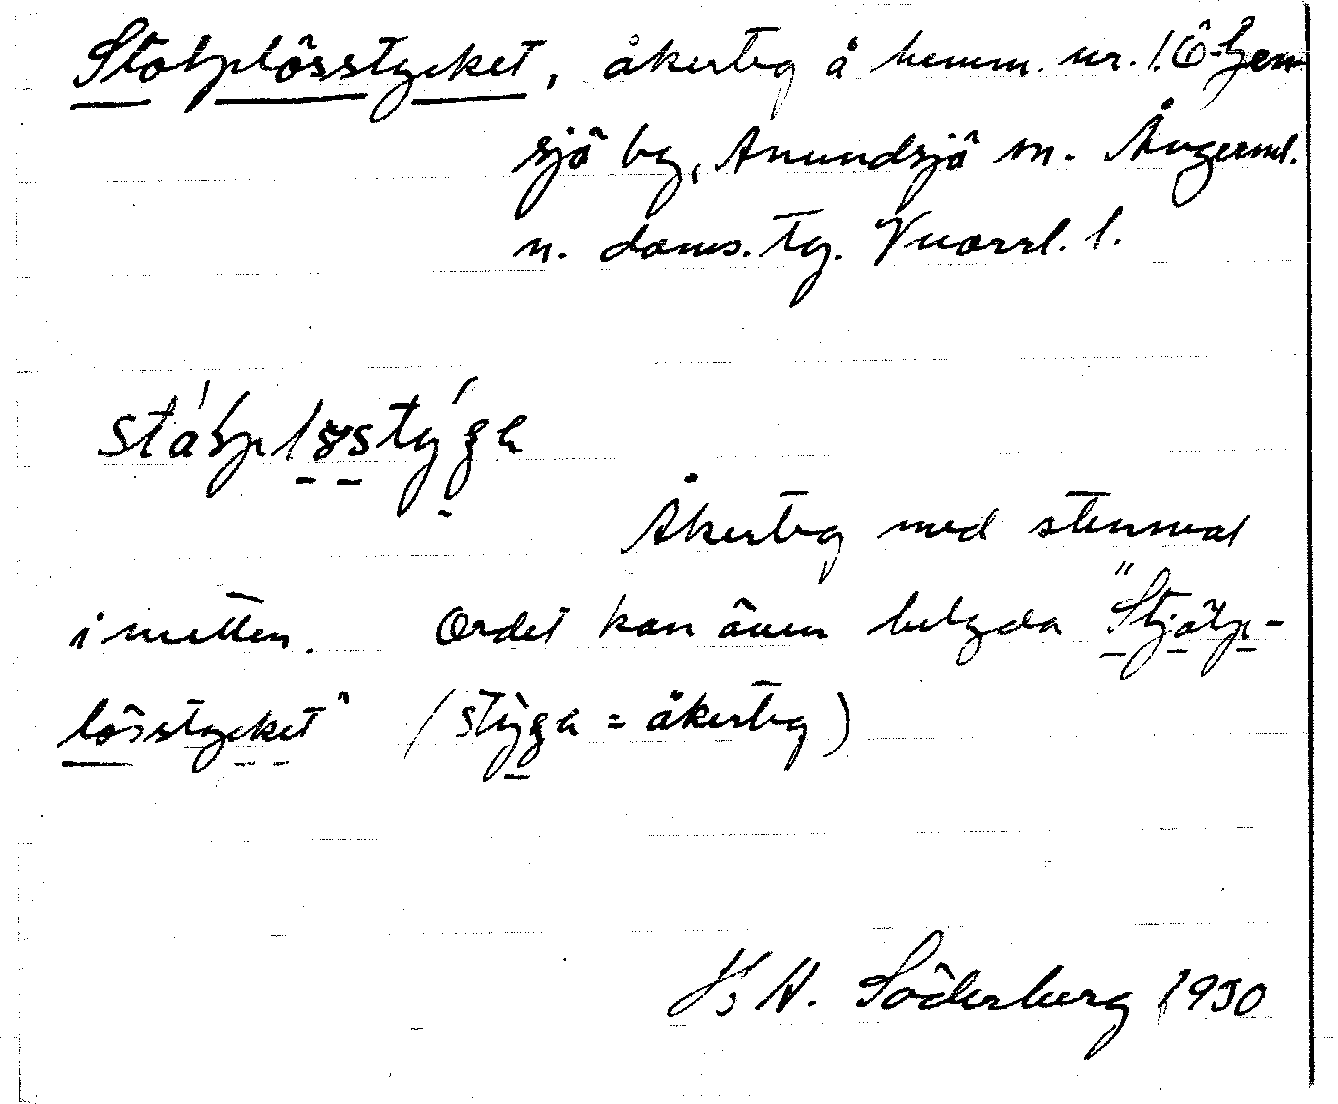 Stolplösstycket, åkerteg å hemm. nr. 1. Ö-Gens
sjö by, Anundsjö sn. Ångerml.
n. doms. Tg. Vnorrl. l.
stål̓plɤstýga
Åkerteg med stensval
i mitten. Ordet kan även betyda "Stjälp-
lösstycket" (stỳga = åkerteg)
H. A. Söderberg 1930